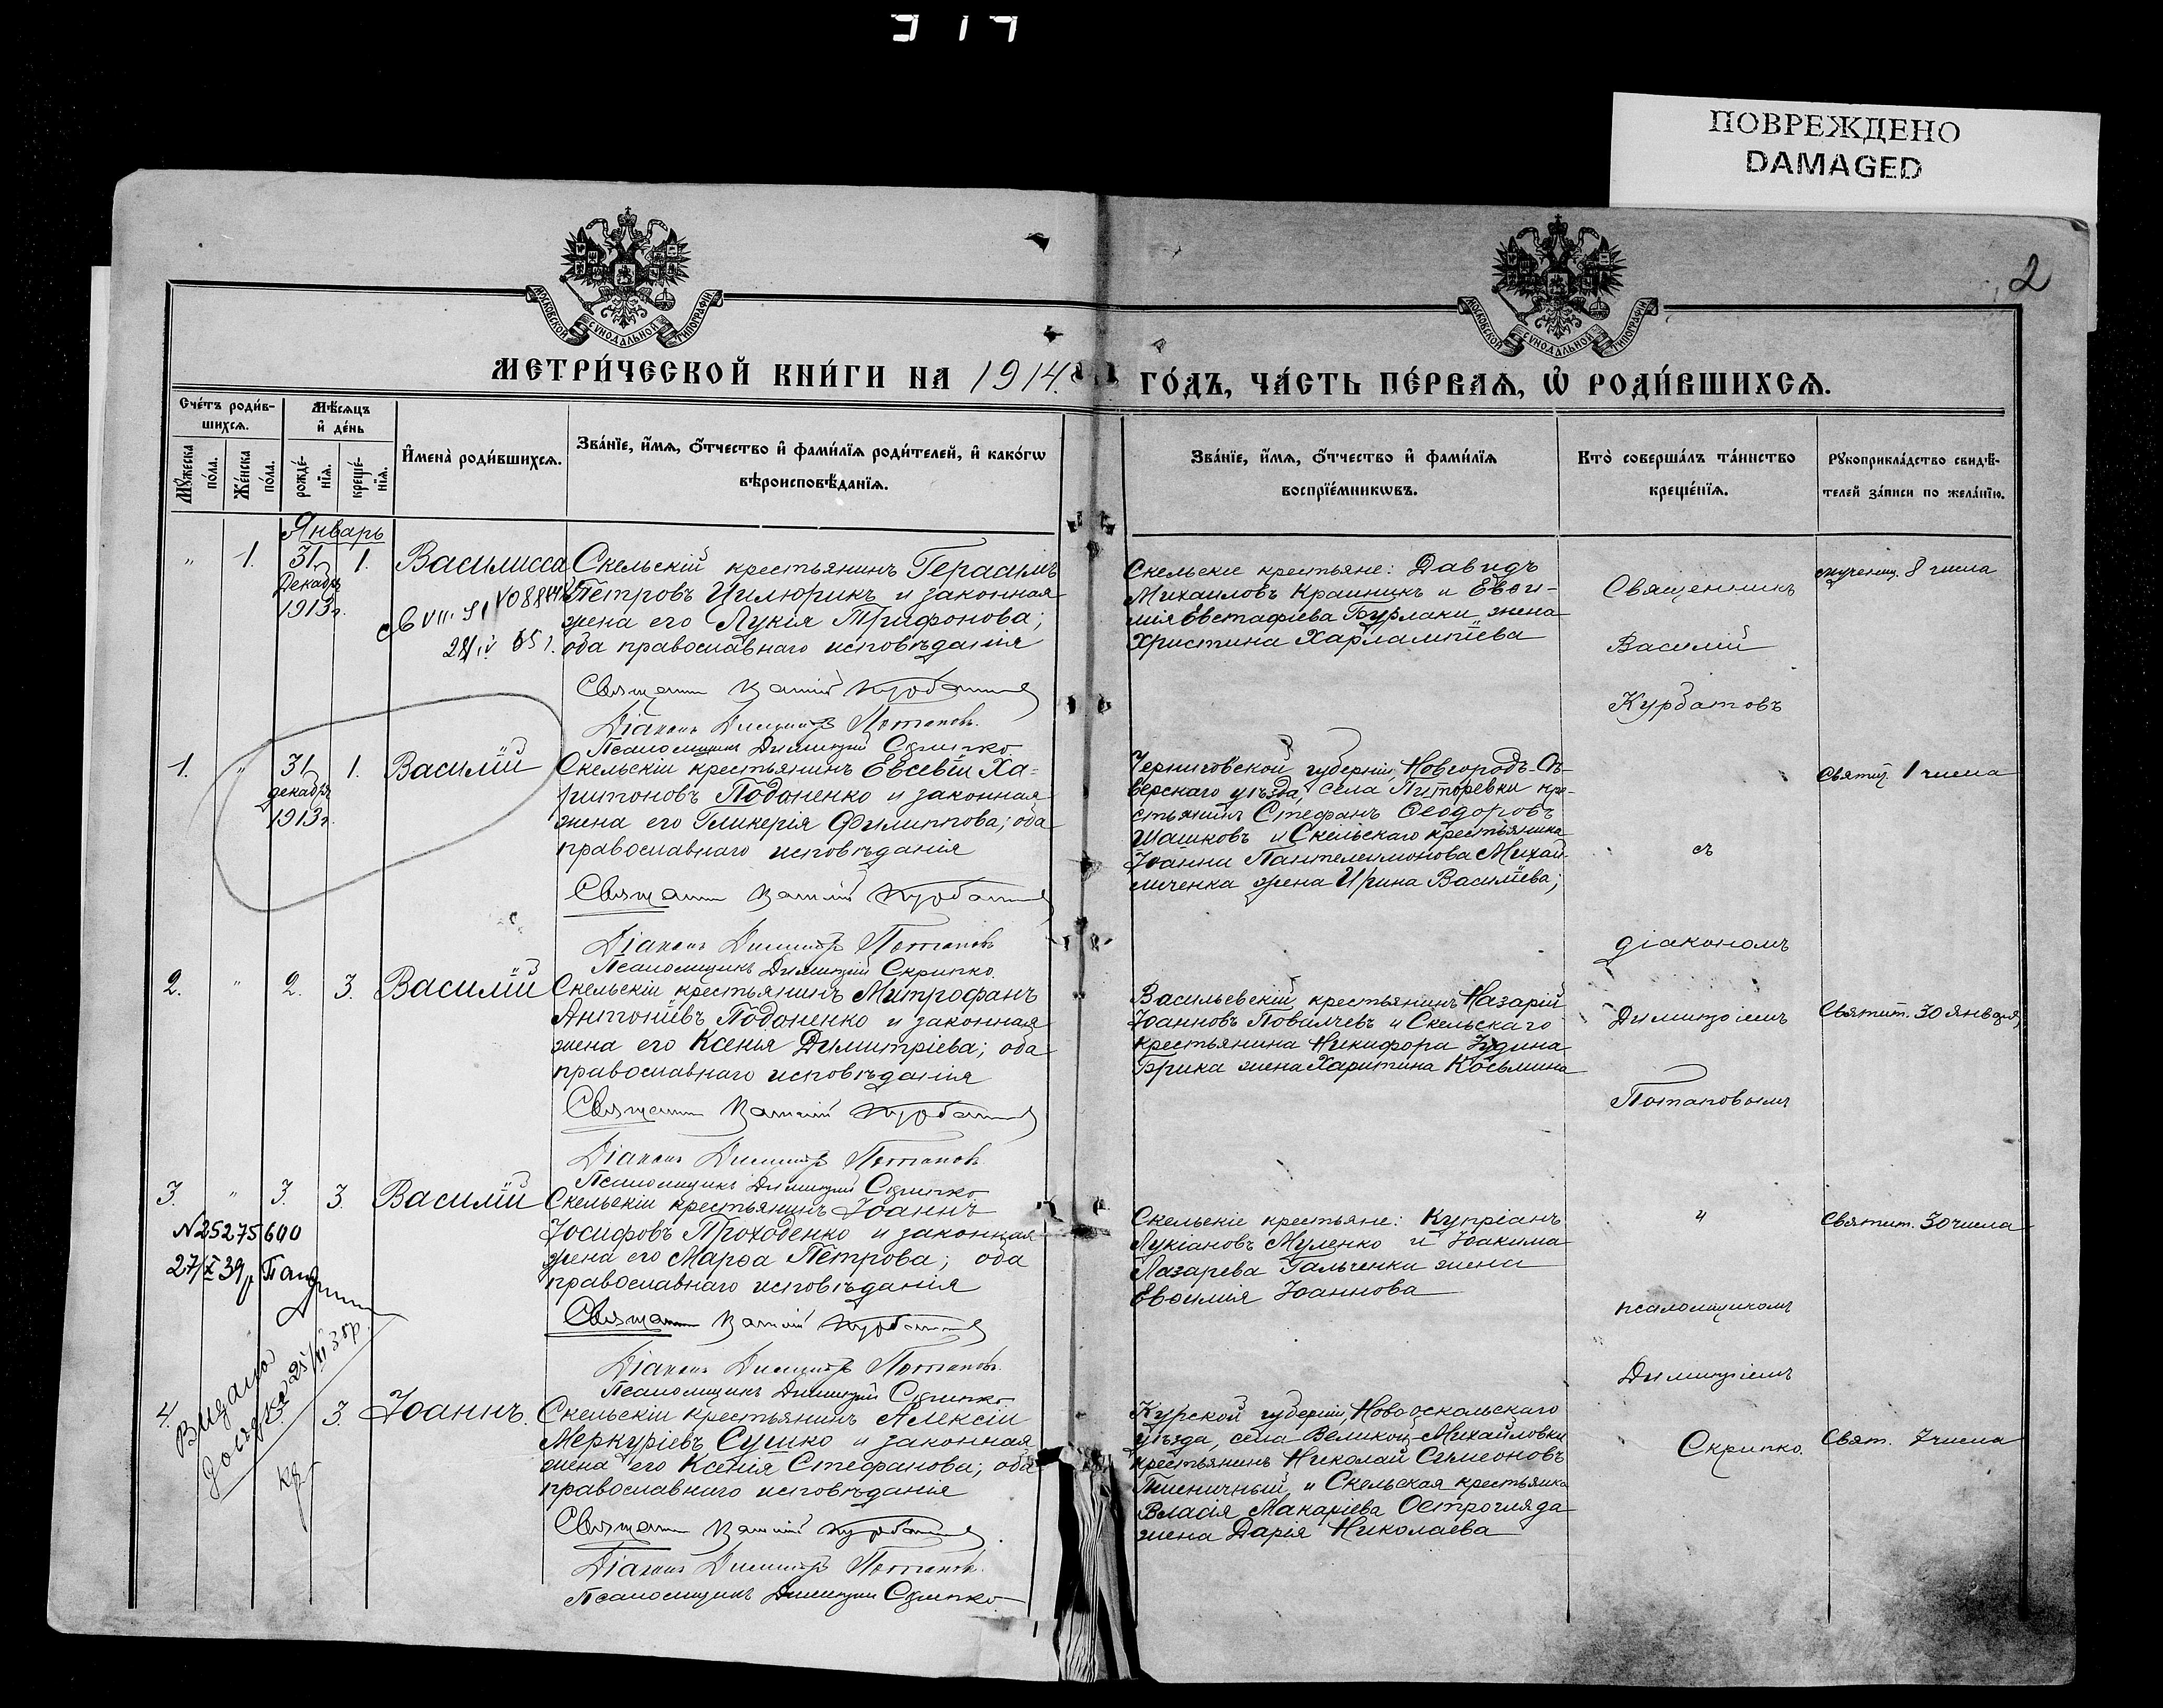 914
ПОВРЕЖДЕНО
DAMAGED
2
МОСКОВСКОЙ СѴНОДАЛЬНОЙ ТИПОГРАФІИ
МОСКОВСКОЙ СѴНОДАЛЬНОЙ ТИПОГРАФІИ
МЕТРИ́ЧЕСКОЙ КНИ́ГИ НА 1914 ГО́ДЪ, ЧА́СТЬ ПЕ́РВАѦ, Ѡ РОДИ́ВШИХСѦ.
Сче́тъ роди́вшихсѧ.
Мꙋ́жеска по́ла.
Же́нска по́ла.
Мѣ́сѧцъ и҆ де́нь
рожде́нїѧ.
креще́нїѧ.
И҆мена̀ роди́вшихсѧ.
Зва́нїе, и҆́мѧ, ѻ҆́тчество и҆ фами́лїѧ роди́телей, и҆ како́гѡ
вѣроисповѣ́данїѧ.
Зва́нїе, и҆́мѧ, ѻ҆́тчество и҆ фами́лїѧ
воспрїе́мникѡвъ.
Кто̀ соверша́лъ та́инство
креще́нїѧ.
Рꙋкоприкла́дство свидѣ́телей за́писи по жела́нїю.
Январь
" 1. 31 Декабр. 1913 г. 1. Василисса
Скельскій крестьянинъ Герасимъ
Петровъ Цилюрикъ и законная
жена его Лукія Трифонова;
оба православнаго исповѣданія
Священн. Василій Курбатовъ
Діаконъ Димитрій Потаповъ.
Псаломщикъ Димитрій Скрипко
Скельскіе крестьяне: Давидъ
Михаиловъ Краиникъ и Евѳи-
мія Евстафіева Бурлаки жена
Христина Харлампіева
Священникъ
Василій
Курбатовъ
мучениц. 8 числа
1. " 31 декабря 1913 г. 1. Василій
Скельскій крестьянинъ Евсевій Ха-
ритоновъ Подоненко и законная
жена его Гликерія Филиппова; оба
православнаго исповѣданія
Священн. Василій Курбатовъ
Діаконъ Димитрій Потаповъ
Псаломщикъ Димитрій Скрипко
Черниговской губерніи, Новгородъ-Сѣ-
верскаго уѣзда, села кре-
стьянинъ Стефанъ Ѳеодоровъ
Шашковъ и Скельскаго крестьянина
Іоанна Пантелеимонова Михай-
личенка жена Ирина Василіева;
съ
діакономъ
Святит. 1 числа
2. " 2. 3. Василій
Скельскій крестьянинъ Митрофанъ
Антоніевъ Подоненко и законная
жена его Ксенія Димитріева; оба
православнаго исповѣданія
Священн. Василій Курбатовъ
Діаконъ Димитрій Потаповъ
Псаломщикъ Димитрій Скрипко
Васильевскій крестьянинъ Назарій
Іоанновъ Повалчевъ и Скельскаго
крестьянина Никифора Іудина
Брика жена Харитина Косьмина
Димитріемъ
Потаповымъ
Святит. 30 января
3. " 3. 3. Василій
N 25275600
27/X 39
Скельскій крестьянинъ Іоаннъ
Іосифовъ Проходенко и законная
жена его Марѳа Петрова; оба
православнаго исповѣданія
Священн. Василій Курбатовъ
Діаконъ Димитрій Потаповъ.
Псаломщикъ Димитрій Скрипко
Скельскіе крестьяне: Купріанъ
Лукіановъ Муленко и Іоакима
Лазарева Гальченки жена
Евѳимія Іоаннова
и
псаломщикомъ
Димитріемъ
Скрипко.
Святит. 30 числа
4. 3. Іоаннъ.
Видана
Скельскій крестьянинъ Алексій
Меркуріевъ Сушко и законная
жена его Ксенія Стефанова; оба
православнаго исповѣданія
Священн. Василій Курбатовъ
Діаконъ Димитрій Потаповъ.
Псаломщикъ Димитрій Скрипко
Курской губерніи, Новооскольскаго
уѣзда, села Великой-Михайловки
крестьянинъ Николай Симеоновъ
Пшеничный, и Скельская крестьянка
Власія Макаріева Остроглядa
жена Дарія Николаева
Свят. 7 числа